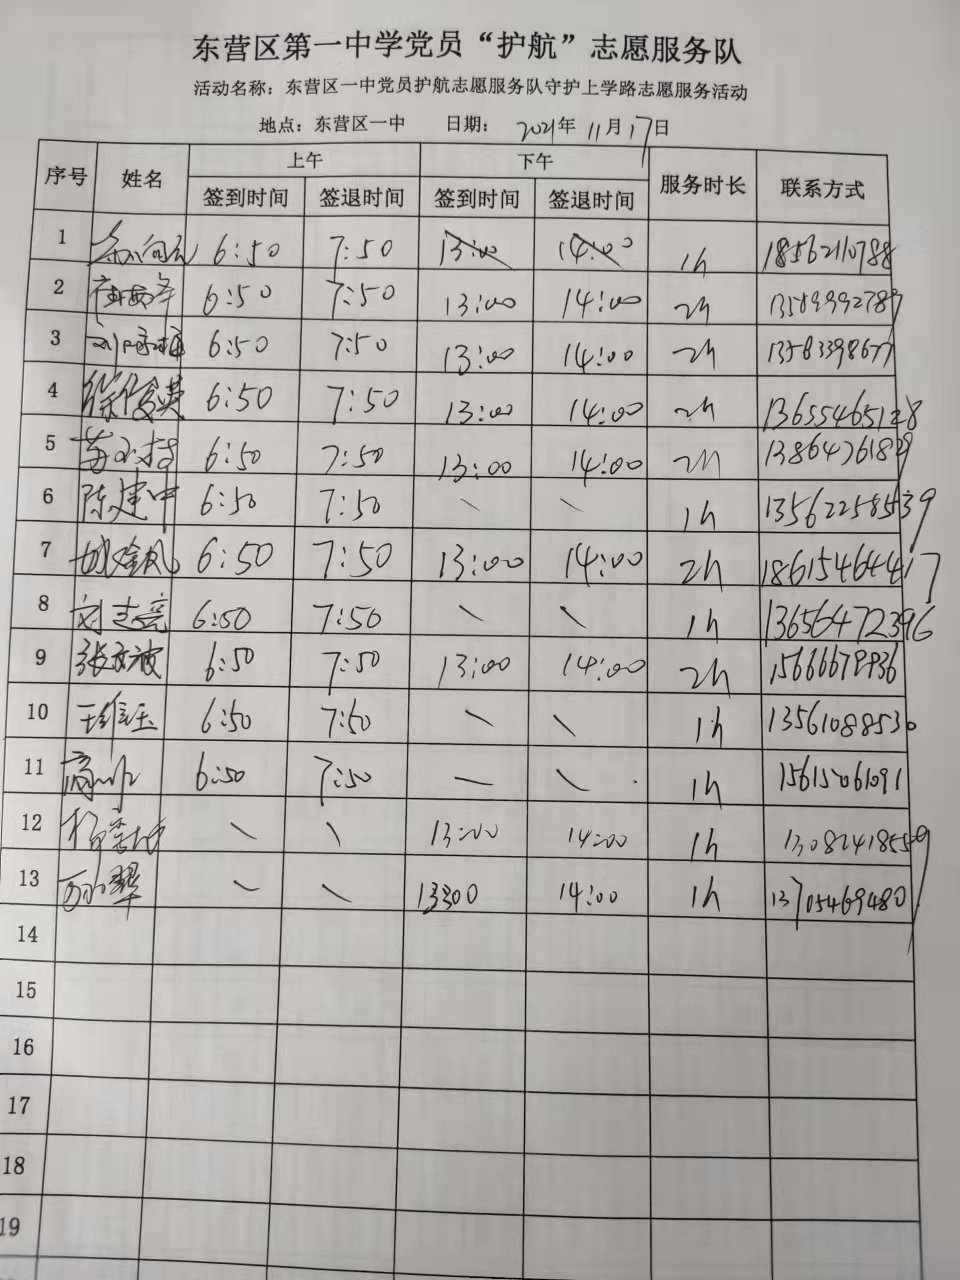 东营区第一中学党员“护航”志愿服务队
活动名称：东营区一中党员护航志愿服务队守护上学路志愿服务活动
地点：东营区一中 日期： 2021年 11月 17日
序号 姓名 上午 下午 服务时长 联系方式
签到时间 签退时间 签到时间 签退时间
1 6:50 7:50 13:00 14:00 1h 18562110788
2 6:50 7:50 13:00 14:00 2h 13589992789
3 6:50 7:50 13:00 14:00 2h
4 徐俊英 6:50 7:50 13:00 14:00 2h 13655465128
5 6:50 7:50 13:00 14:00 2h
6 陈建中 6:50 7:50 \ \ 1h 13562258539
7 6:50 7:50 13:00 14:00 2h 18615464417
8 刘志亮 6:50 7:50 \ \ 1h 13656472396
9 6:50 7:50 13:00 14:00 2h
10 6:50 7:50 \ \ 1h 13561088530
11 6:50 7:50 \ \ 1h 15615061091
12 \ \ 13:00 14:00 1h
13 \ \ 13300 14:00 1h 13705469480
14
15
16
17
18
19